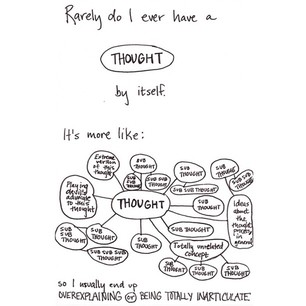 Rarely do I ever have a
THOUGHT
by itself.
It's more like:
Extreme
version of
this
thought
SUB
THOUGHT
SUB
SUB
THOUGHT
SUB SUB
THOUGHT
SUB SUB THOUGHT
SUB
THOUGHT
SUB
THOUGHT
SUB SUB
THOUGHT
SUB
SUB SUB
THOUGHT
Playing
devil's
advocate
to this
thought
THOUGHT
Ideas
about
the
thought
process
in
general
SUB THOUGHT
SUB
SUB
THOUGHT
SUB
SUB
THOUGHT
SUB
THOUGHT
SUB SUB SUB
THOUGHT
Totally unrelated
concept
SUB
THOUGHT
SUB
THOUGHT
SUB
THOUGHT
so I usually end up
OVEREXPLAINING or BEING TOTALLY INARTICULATE